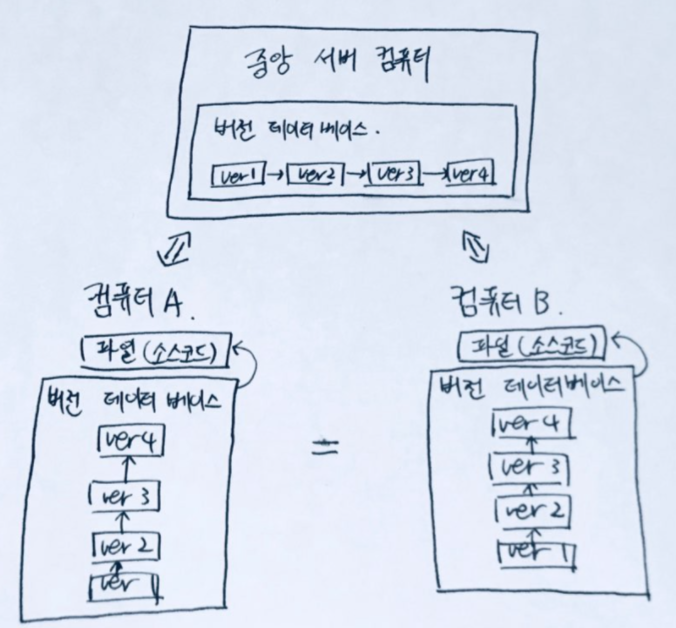 중앙 서버 컴퓨터
버전 데이터베이스.
ver1 → ver2 → ver3 → ver4
컴퓨터 A.
파일 (소스코드)
버전 데이터 베이스
ver4
ver 3
ver 2
ver 1
=
컴퓨터 B.
파일 (소스코드)
버전 데이터베이스
ver 4
ver 3
ver 2
ver 1